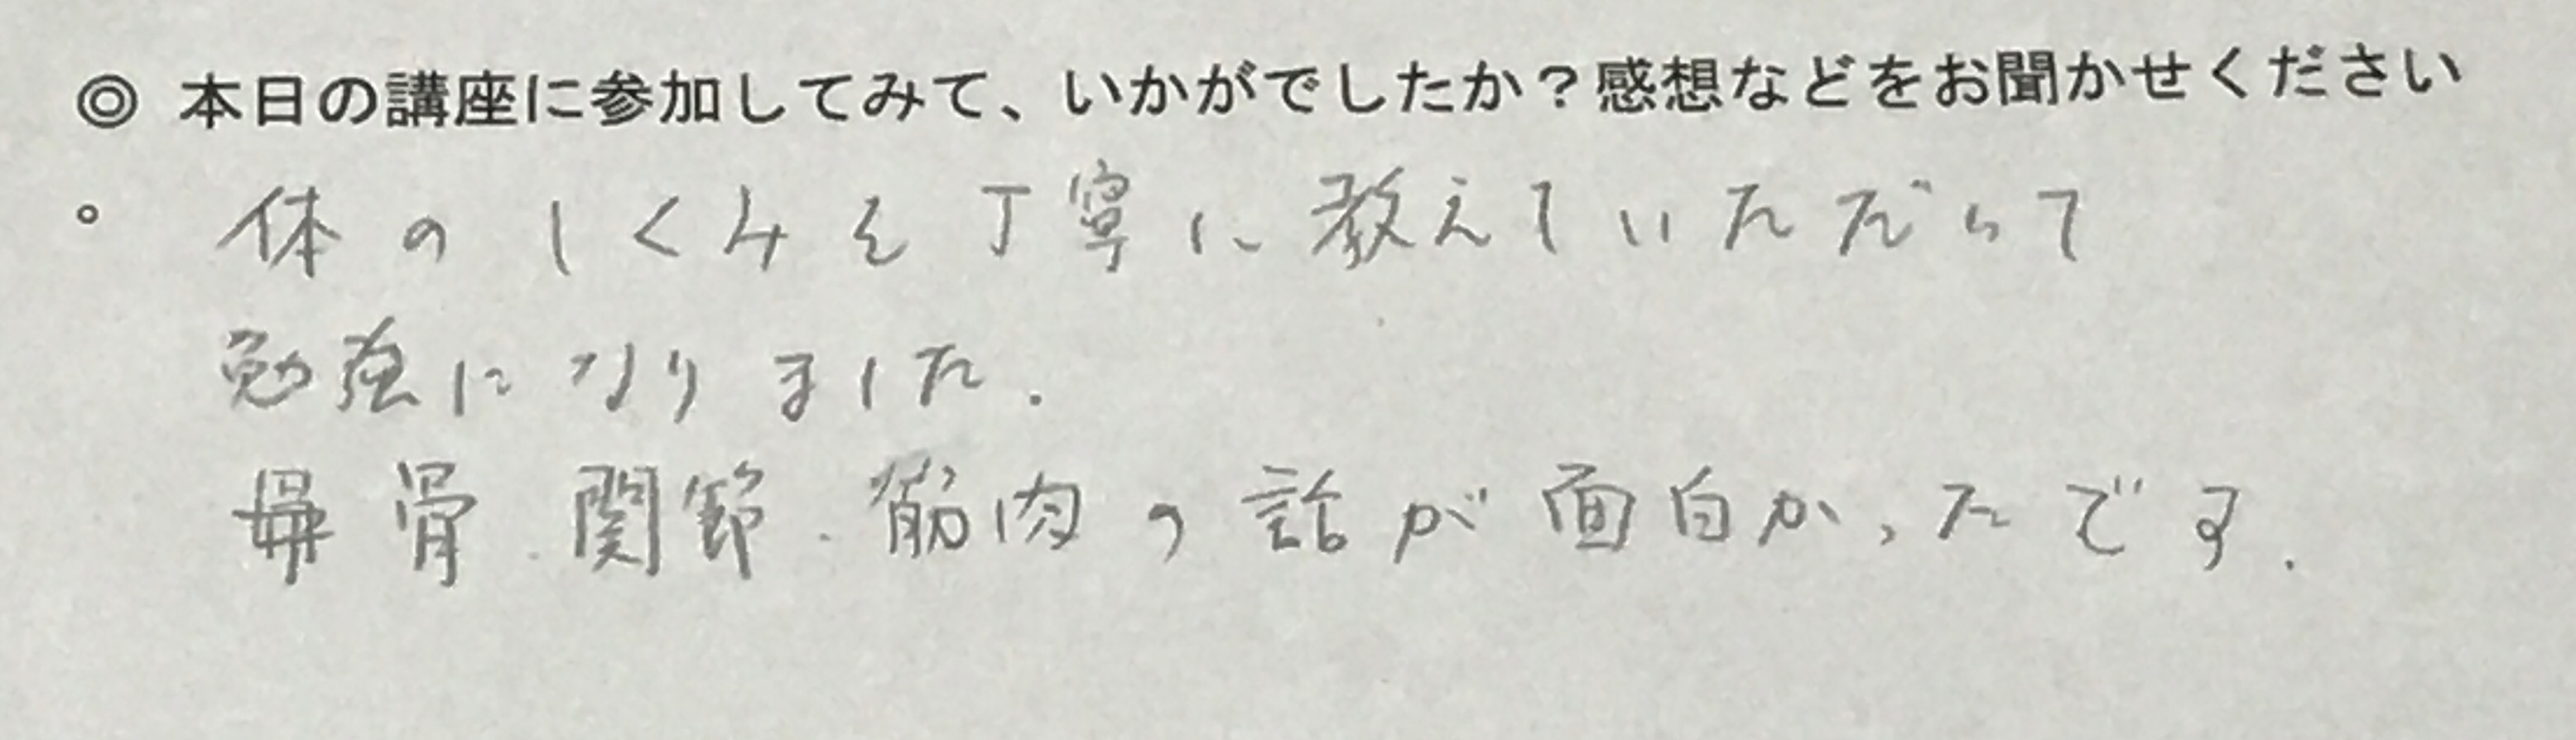 ◎ 本日の講座に参加してみて、いかがでしたか？感想などをお聞かせください
。 体のしくみを丁寧に教えていただいて
勉強になりました.
骨.関節.筋肉の話が面白かったです.